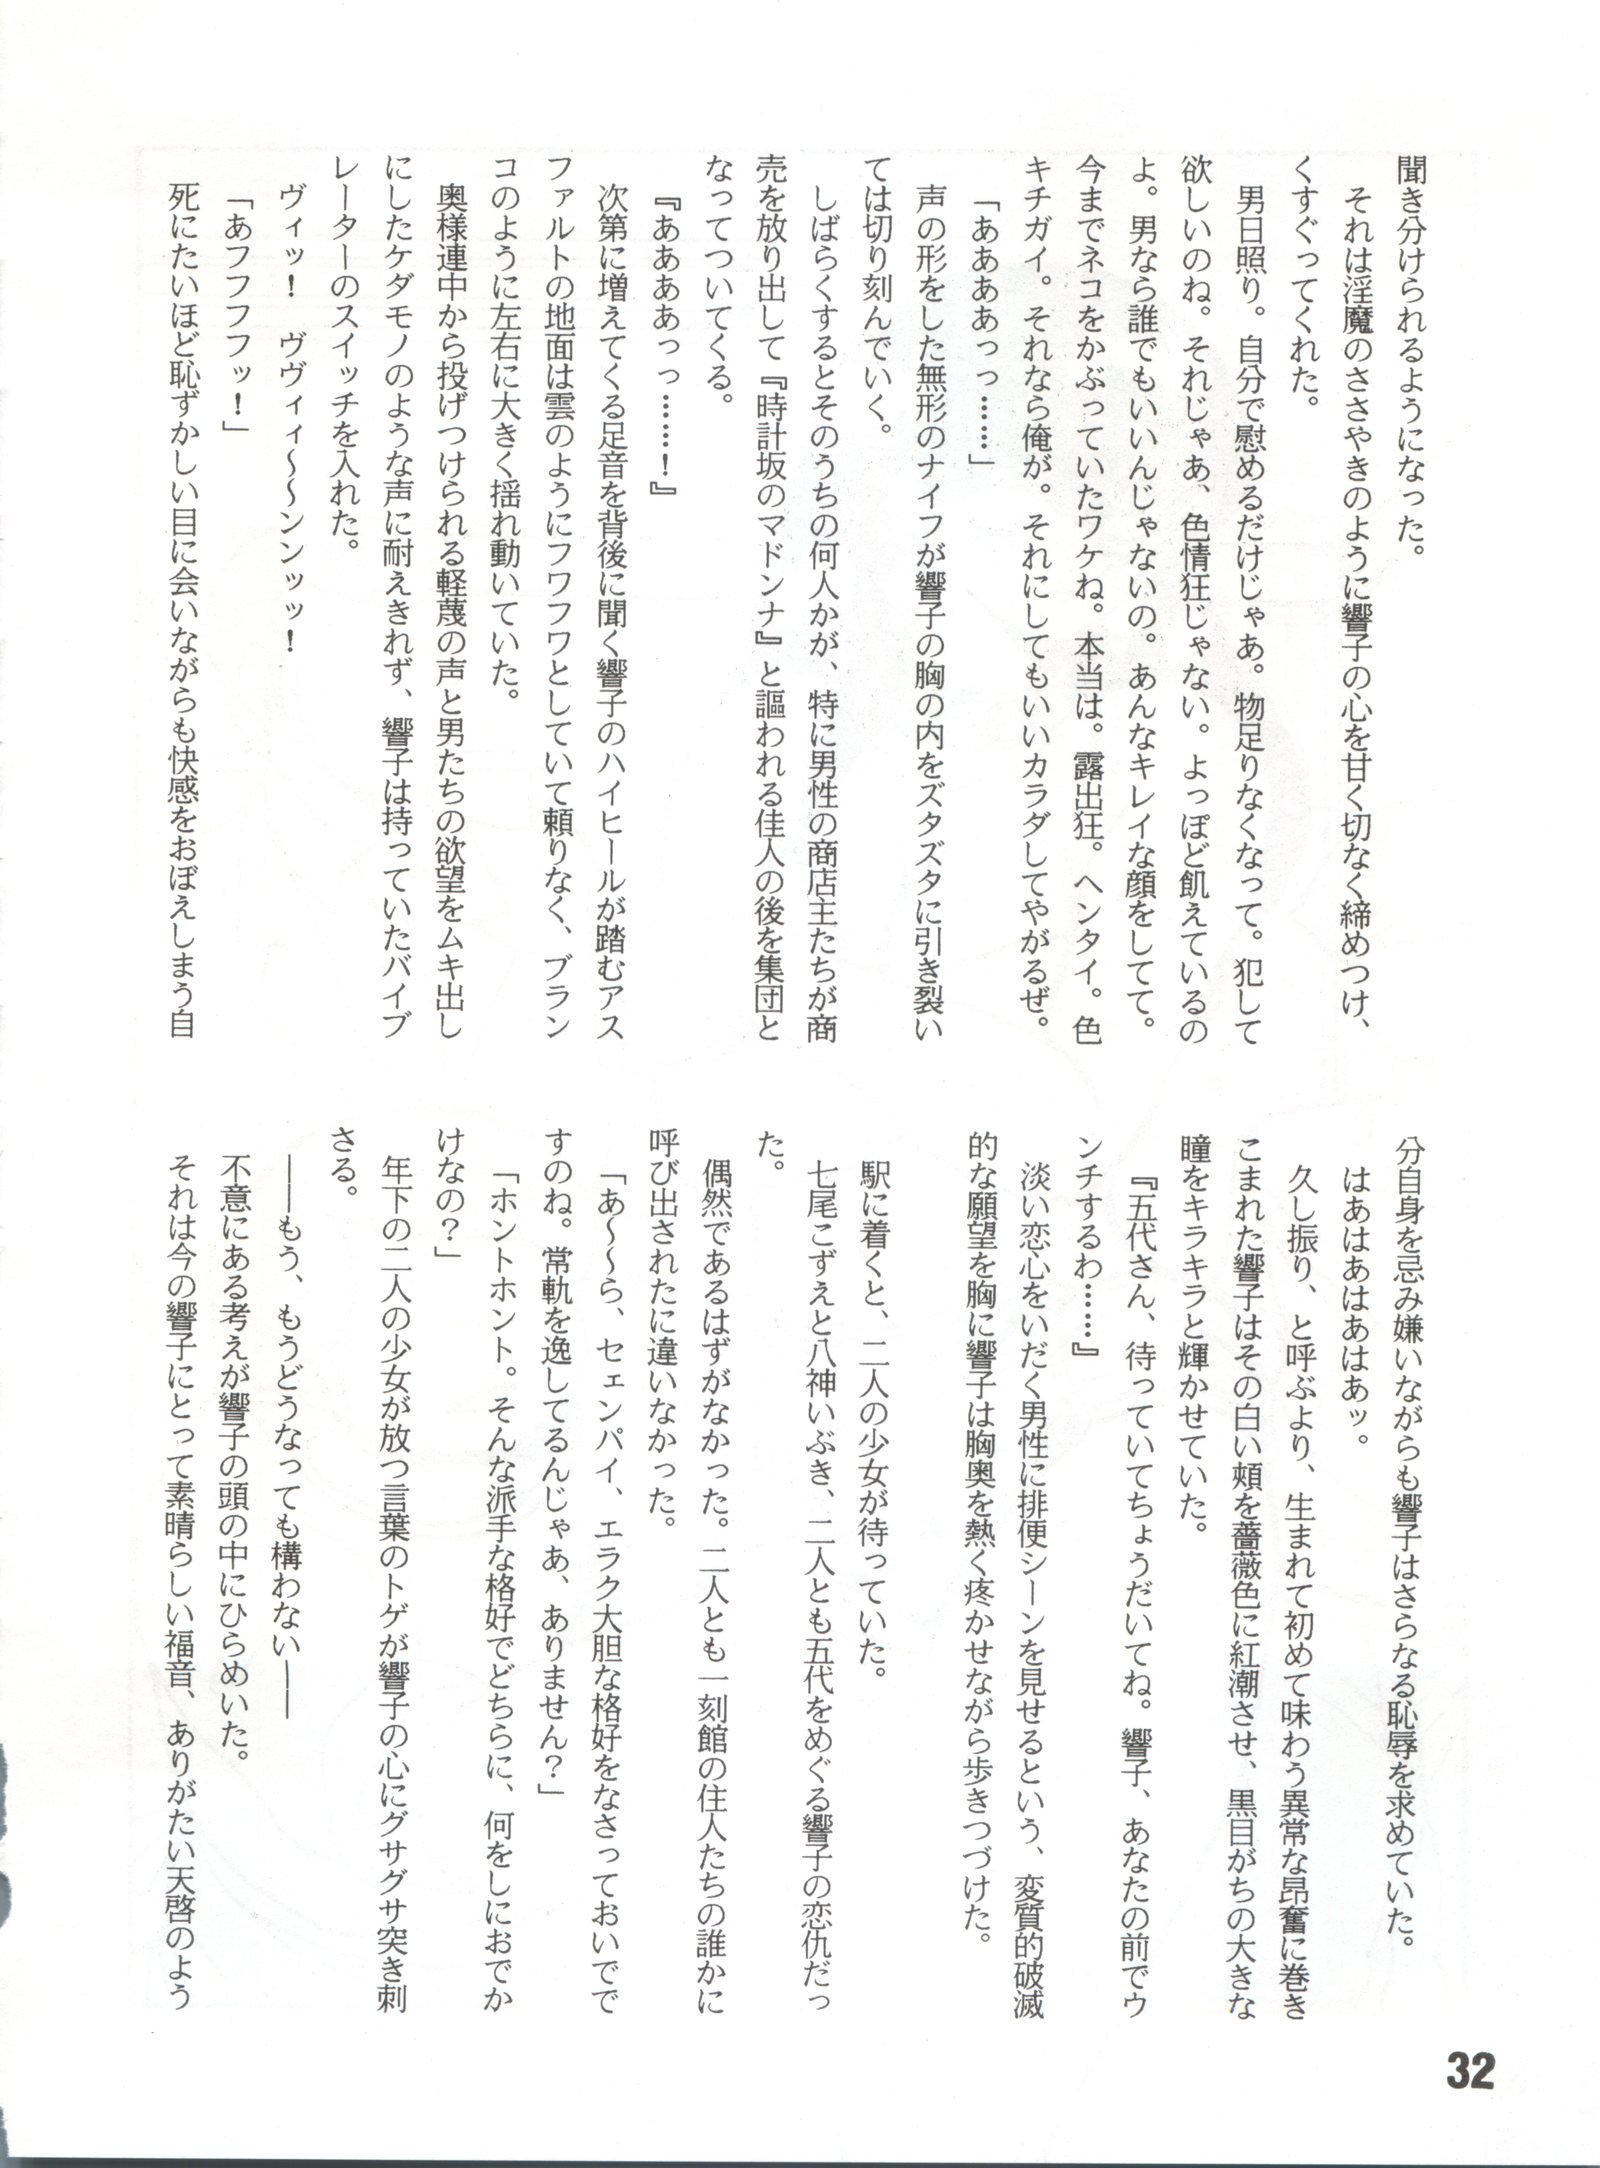 聞き分けられるようになった。
それは淫魔のささやきのように響子の心を甘く切なく締めつけ、
くすぐってくれた。
男日照り。自分で慰めるだけじゃあ。物足りなくなって。犯して
欲しいのね。それじゃあ、色情狂じゃない。よっぽど飢えているの
よ。男なら誰でもいいんじゃないの。あんなキレイな顔をしてて。
今までネコをかぶっていたワケね。本当は。露出狂。ヘンタイ。色
キチガイ。それなら俺が。それにしてもいいカラダしてやがるぜ。
「ああああっっ……」
声の形をした無形のナイフが響子の胸の内をズタズタに引き裂い
ては切り刻んでいく。
しばらくするとそのうちの何人かが、特に男性の商店主たちが商
売を放り出して『時計坂のマドンナ』と謳われる佳人の後を集団と
なってついてくる。
『ああああっっ……！』
次第に増えてくる足音を背後に聞く響子のハイヒールが踏むアス
ファルトの地面は雲のようにフワフワとしていて頼りなく、ブラン
コのように左右に大きく揺れ動いていた。
奥様連中から投げつけられる軽蔑の声と男たちの欲望をムキ出し
にしたケダモノのような声に耐えきれず、響子は持っていたバイブ
レーターのスイッチを入れた。
ヴィッ！　ヴヴィィ～～ンンッッ！
「あフフフフッ！」
死にたいほど恥ずかしい目に会いながらも快感をおぼえしまう自
分自身を忌み嫌いながらも響子はさらなる恥辱を求めていた。
はあはあはあはあッ。
久し振り、と呼ぶより、生まれて初めて味わう異常な昂奮に巻き
こまれた響子はその白い頰を薔薇色に紅潮させ、黒目がちの大きな
瞳をキラキラと輝かせていた。
『五代さん、待っていてちょうだいてね。響子、あなたの前でウ
ンチするわ……』
淡い恋心をいだく男性に排便シーンを見せるという、変質的破滅
的な願望を胸に響子は胸奥を熱く疼かせながら歩きつづけた。
駅に着くと、二人の少女が待っていた。
七尾こずえと八神いぶき、二人とも五代をめぐる響子の恋仇だっ
た。
偶然であるはずがなかった。二人とも一刻館の住人たちの誰かに
呼び出されたに違いなかった。
「あ～～ら、セェンパイ、エラク大胆な格好をなさっておいでで
すのね。常軌を逸してるんじゃあ、ありません？」
「ホントホント。そんな派手な格好でどちらに、何をしにおでか
けなの？」
年下の二人の少女が放つ言葉のトゲが響子の心にグサグサ突き刺
さる。
――もう、もうどうなっても構わない――
不意にある考えが響子の頭の中にひらめいた。
それは今の響子にとって素晴らしい福音、ありがたい天啓のよう
32